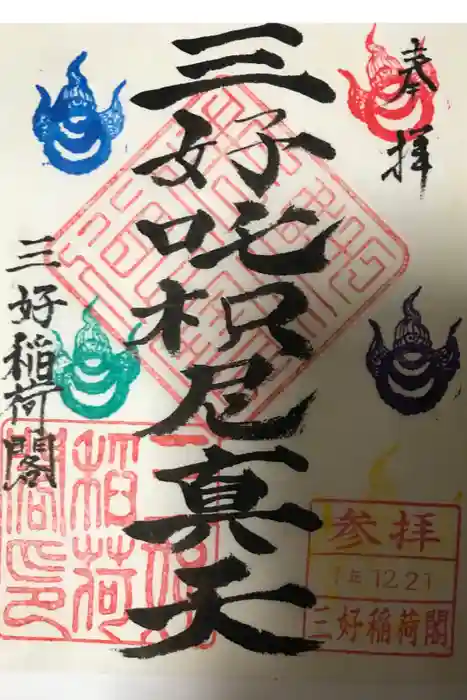 奉拝
三好吒枳尼真天
三好稲荷閣
稲荷
閣印
参拝
1年12.21
三好稲荷閣